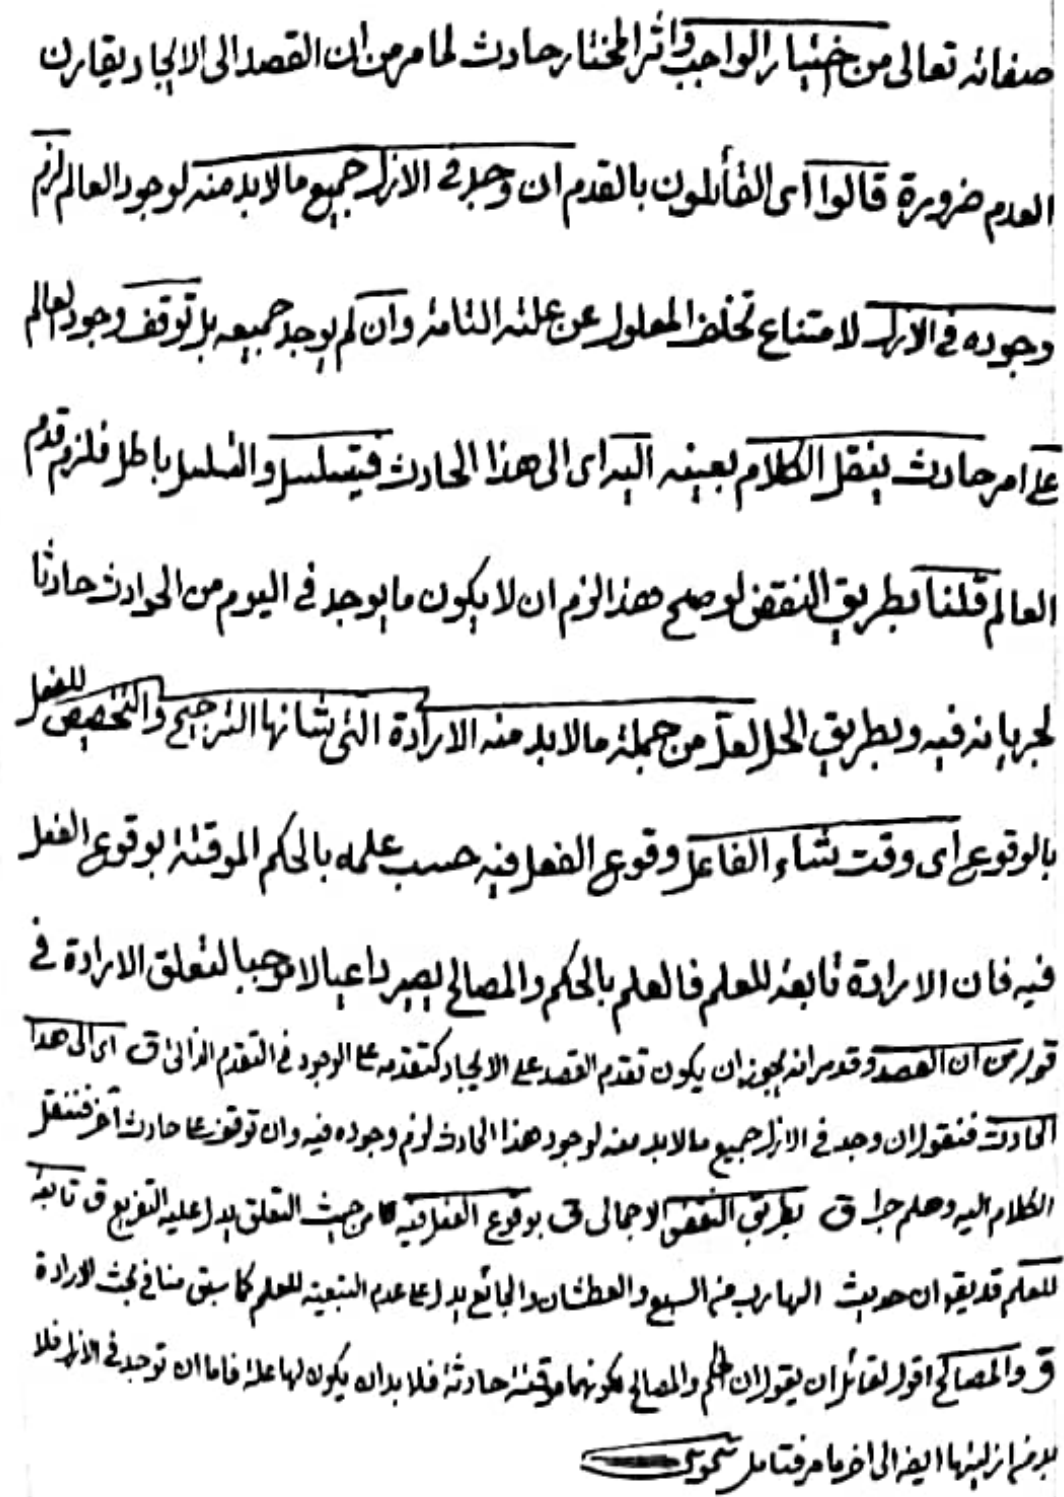 صفاته تعالى من خيتار الواجب واثر المختار حادث لما مر من ان القصد الى الايجاد يقارن
العدم ضرورة قالوا اى القائلون بالقدم ان وجد فى الازل جميع ما لا بد منه لوجود العالم لزم
وجوده فى الازل لامتناع تخلف المعلول عن علته التامة وان لم يوجد جميعه بل توقف وجود العالم
على امر حادث ينقل الكلام بعينه اليه اى الى هذا الحادث فيتسلسل والتسلسل باطل فلزم قدم
العالم قلنا بطريق النقض لو صح هذا لزم ان لا يكون ما يوجد فى اليوم من الحوادث حادثا
لجريانه فيه وبطريق الحل لعل من جملة ما لا بد منه الارادة التى شانها الترجيح والتخصيص للفعل
بالوقوع اى وقت شاء الفاعل وقوع الفعل فيه حسب علمه بالحكم الموقتة بوقوع الفعل
فيه فان الارادة تابعة للعلم فالعلم بالحكم والمصالح يصير داعيا لا موجبا لتعلق الارادة فى
قوله من ان القصد وقد مر انه يجوز ان يكون تقدم القصد على الايجاد كتقدمه على الوجود فى التقدم الذاتى ق اى الى هذا
الحادث فنقول ان وجد فى الازل جميع ما لا بد منه لوجود هذا الحادث لزم وجوده فيه وان توقف على حادث آخر فننقل
الكلام اليه وهلم جرا ق بطريق النقض الاجمالى ق بوقوع الفعل فيه من حيث التعلق يدل عليه التفريع ق تابعة
للعلم قد يق ان حديث الهارب من السبع والعطشان والجائع يدل على عدم التبعية للعلم كما سبق منا فى بحث الارادة
ق والمصالح اقول لقائل ان يقول ان الحكم والمصالح لكونهما موقتة حادثة فلا بد ان يكون لها علة فاما ان توجد فى الازل فلا
بد من ازليتها ايضا الى اخر ما مر فتامل